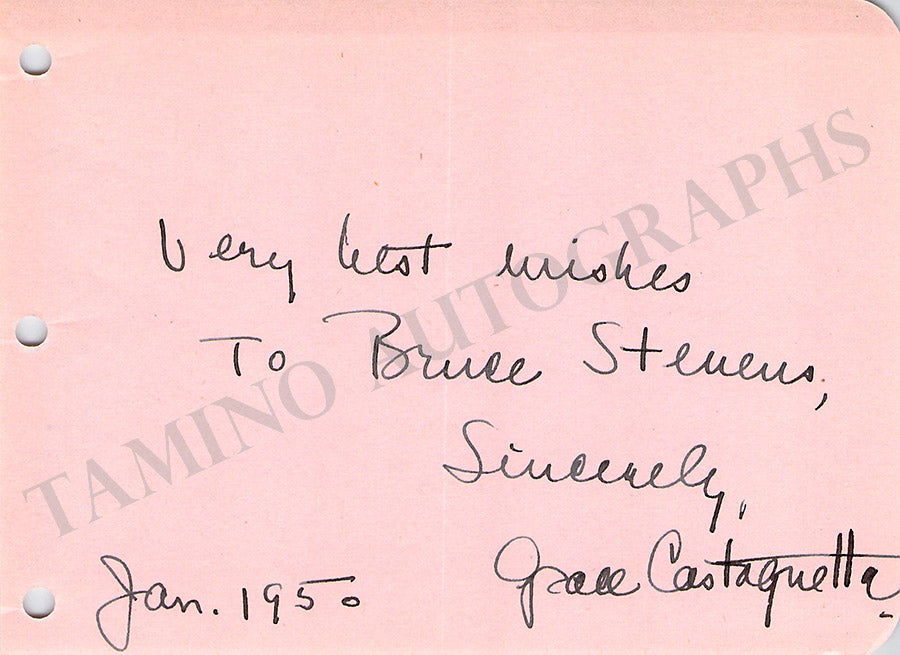 Very best wishes
To Bruce Stevens,
Sincerely,
Grace Castagnetta
Jan. 1950
TAMINO AUTOGRAPHS